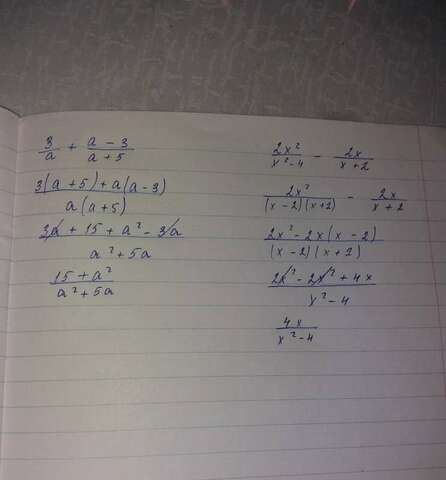 3/a + (a - 3)/(a + 5)
(3(a + 5) + a(a - 3))/(a(a + 5))
(3a + 15 + a² - 3a)/(a² + 5a)
(15 + a²)/(a² + 5a)
2x²/(x² - 4) - 2x/(x + 2)
2x²/((x - 2)(x + 2)) - 2x/(x + 2)
(2x² - 2x(x - 2))/((x - 2)(x + 2))
(2x² - 2x² + 4x)/(x² - 4)
4x/(x² - 4)